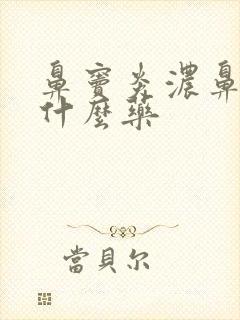 鼻窦炎濃鼻
什麼藥
當貝尔